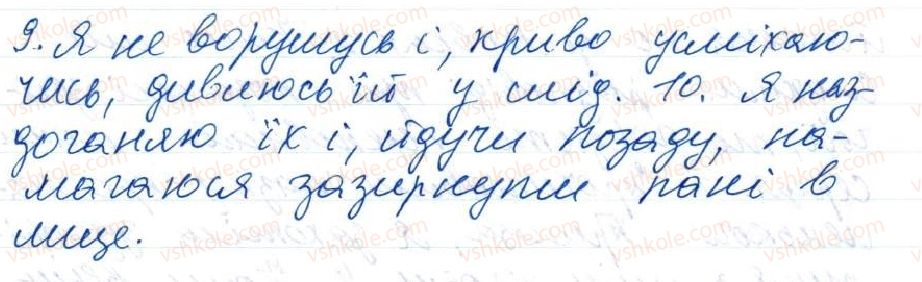 9. Я не ворушусь і, криво усміхаю-
чись, дивлюсь їй у слід. 10. Я наз-
доганяю їх і, йдучи позаду, на-
магаюся зазирнути пані в
лице.